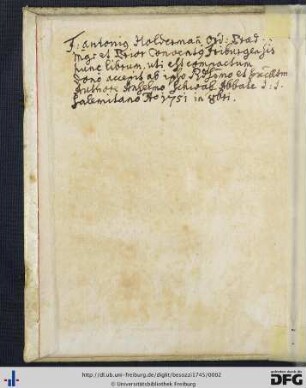 F: Antonig Holderman Ord: Prad
Mgr et Prior Conventg Friburgensis
hunc librum, uti est compactum
dono accepit ab ipso Rdssmo et
Authore Anselmo Schwab Abbate
Salemitano Ao 1751 in 8bri.
http://dl.ub.uni-freiburg.de/diglit/besozzi1745/0002
© Universitätsbibliothek Freiburg
gefördert durch die
DFG